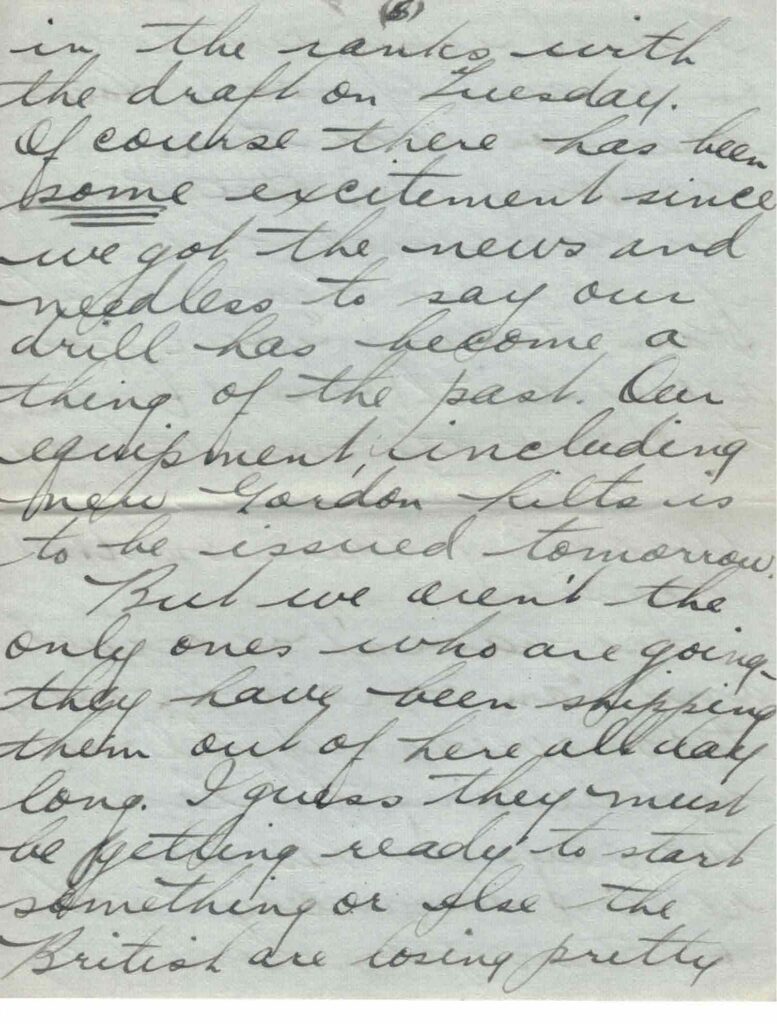 (6)
in the ranks with
the draft on Tuesday.
Of course there has been
some excitement since
we got the news and
needless to say our
drill has become a
thing of the past. Our
equipment, including
new Gordon kilts is
to be issued tomorrow.
But we aren't the
only ones who are going-
they have been shipping
them out of here all day
long. I guess they must
be getting ready to start
something or else the
British are losing pretty